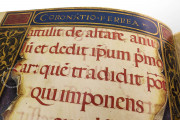 CORONATIO FERREA
attulit de altare, anu
it et dedit ipūm p̄m
car: que tradidit po
qui imponens